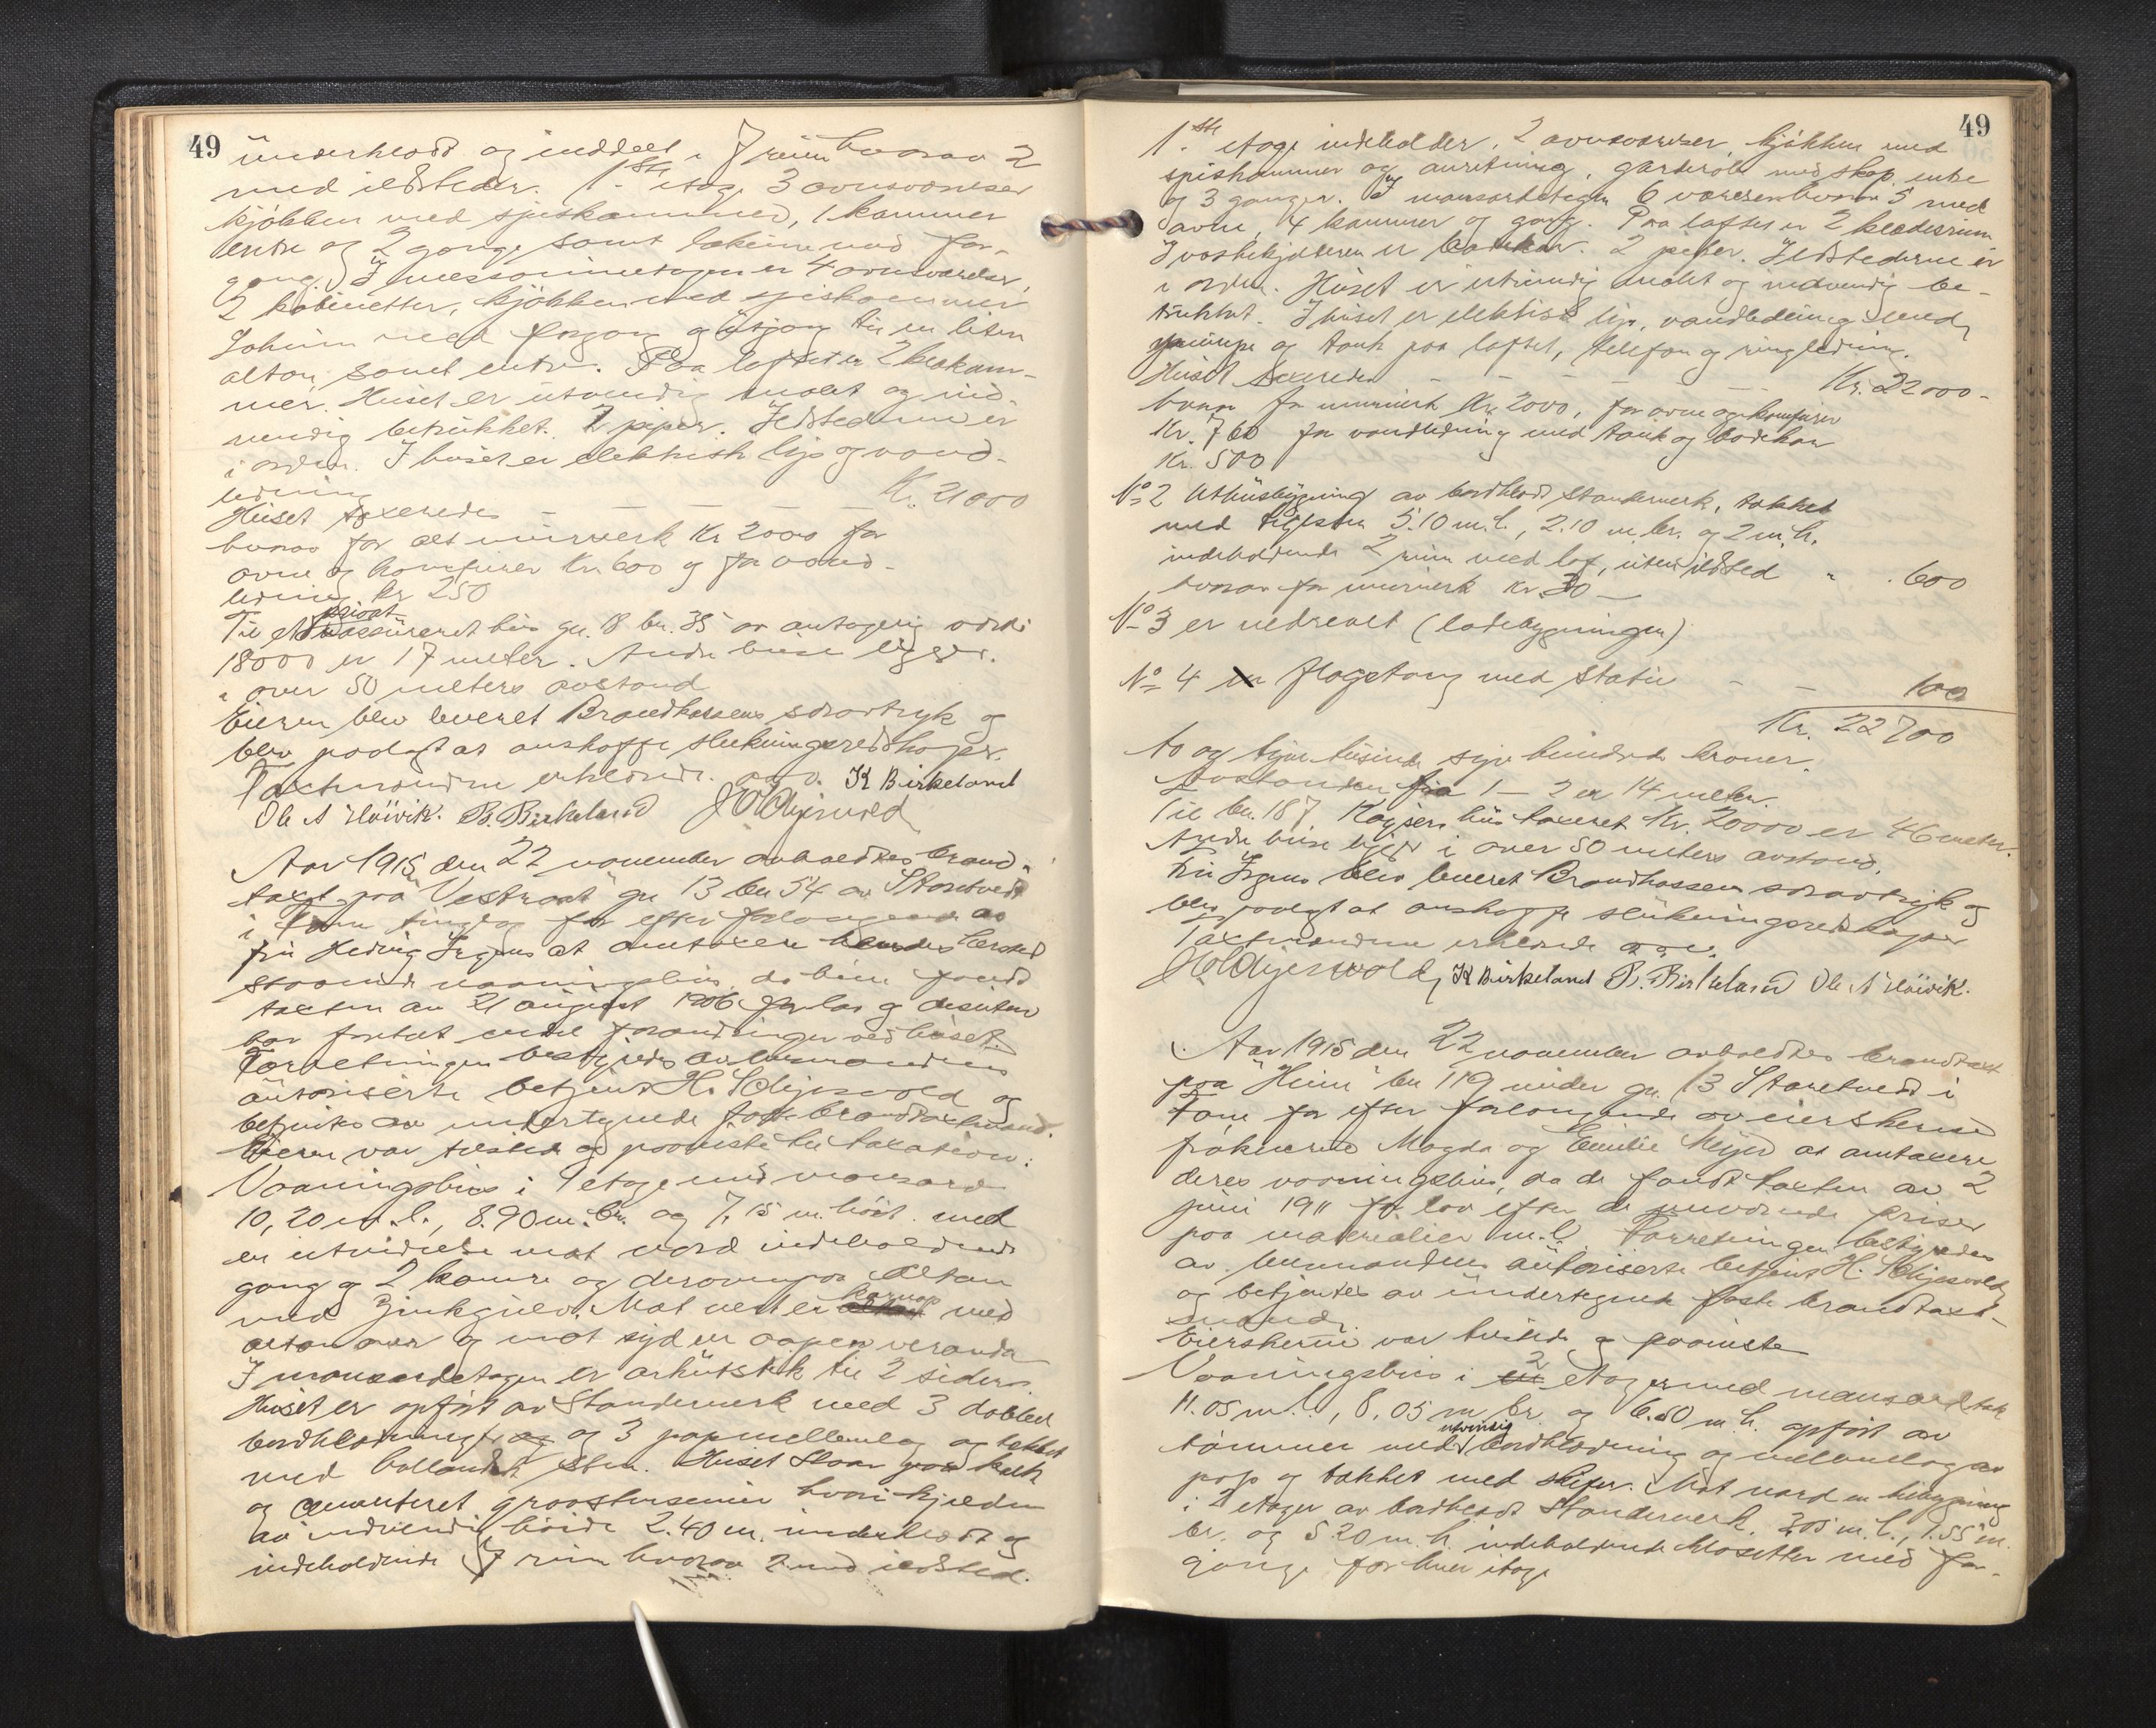 49
underklædt og inddelt i 7 rum hvorav 2
med ildsteder. 1ste etage 3 ovnsværelser
kjøkken med spiskammer, 1 kammer
entre og 2 gange samt lokum med for-
gang. I messaninetagen er 4 ovnsværelser,
2 kabinetter, kjøkken med spiskammer
Lokum med forgang og utgang til en liten
altan, samt entre. Paa loftet er 2 kokam-
mer. Huset er utvendig malet og ind-
vendig betrukket. 2 piper. Ildstederne er
i orden. I huset er elektrisk lys og vand-
ledning
Huset taxeredes - - - - - Kr. 21000
hvorav for alt murverk Kr 2000 for
ovne og komfurer Kr. 600 og for vand-
ledning kr 250
Til et privat assureret hus gn. 13 bn. 35 av antagelig værdi
18000 er 17 meter. Andre huse ligger
i over 50 meters avstand
Eieren blev leveret Brandkassens særtryk og
blev paalagt at anskaffe slukningsredskaper.
Taxtmændene erklærede. o. s. v. K Birkeland
Ole A Høivik. B. Birkeland H Schjesvold
Aar 1915 den 22 november avholdtes brand-
taxt paa "Vestraat" gn 13 bn 54 av Storetvedt
i Fane tinglag for efter forlangende av
fru Hedvig Irgens at omtaxere hendes bested
staaende vaaningshus, da hun fandt
taxten av 21 august 1906 for lav og desuten
har foretat endel forandringer ved huset.
Forretningen bestyredes av lensmandens
autoriserte betjent H. Schjesvold og
betjentes av undertegnede faste brandtaxtmænd.
Eieren var tilstede og paaviste til taxation:
Vaaningshus i 1 etage med mansard
10,20 m. l., 8.90 m. br. og 7.15 m. høit. med
en utvidelse mot nord indeholdende
gang og 2 kamre og derovenpaa Altan
med Zinkgulv. Mot vest er karnap med
altan over og mot syd en aapen veranda
I mansardetagen er arkutstik til 2 sider.
Huset er opført av Standerverk med 3 dobbel
bordklædning og 3 papmellemlag og tækket
med hollandsk sten. Huset staar paa kalk
og cementeret graastensmur hvori kjelder
av indvendig høide 2.40 m. underklædt og
indeholdende 7 rum hvorav 2 med ildsted.
49
1ste etage indeholder, 2 ovnsværelser, kjøkken med
spiskammer og anretning, garderobe med skap, entre
og 3 ganger. I mansardetagen 6 værelser hvorav 5 med
ovne, 4 kammer og gang. Paa loftet er 2 klædesrum
I vaskekjelderen er badekar. 2 piper. Ildstederne er
i orden. Huset er utvendig malet og indvendig be-
trukket. I huset er elektrisk lys, vandledning med
pumpe og tank paa loftet, telefon og ringledning.
Huset taxeredes - - - - - Kr. 22000-
hvorav for murverk Kr. 2000, for ovne og komfurer
Kr. 700 for vandledning med tank og badekar
Kr. 500
No 2 Uthusbygning av bordklædt Standerverk, tækket
med teglsten 5.10 m. l., 2.10 m. br. og 2 m. h.
indeholdende 2 rum med lof, uten ildsted " 600
hvorav for murverk Kr. 30 -
No 3 er nedrevet (ladebygningen)
No 4 Flagstang med Stativ - - 100
Kr. 22700
to og tyve tusinde syv hundrede kroner.
Avstanden fra 1 - 2 er 14 meter.
Til bn. 187 Kaisers hus taxeret Kr. 20000 er 46 meter.
Andre huse ligger i over 50 meters avstand.
Fru Irgens blev leveret Brandkassens særtryk og
blev paalagt at anskaffe slukningsredskaper
Taxtmændene erklærede o. s. v.
H Schjesvold K Birkeland B. Birkeland Ole A Høivik.
Aar 1915 den 22 november avholdtes brandtaxt
paa "Heim" bn 119 under gn. 13 Storetvedt i
Fane for efter forlangende av eierskerne
frøknerne Magda og Emilie Meyer at omtaxere
deres vaaningshus, da de fandt taxten av 2
juni 1911 for lav efter de nuværende priser
paa materialier m. v. Forretningen bestyredes
av lensmandens autoriserte betjent H. Schjesvold
og betjentes av undertegnede faste brandtaxt-
mænd.
Eierskerne var tilstede og paaviste
Vaaningshus i 2 etager med mansardtak
11.05 m. l., 8.05 m br. og 6.50 m h. opført av
tømmer med utvendig bordklædning og mellemlag av
pap og tækket med skifer. Mot nord en tilbygning
i 2 etager av bordklædt Standerverk. 3.05 m. l., 1.55 m.
br. og 5.20 m. h. indeholdende klosetter med for-
gange for hver etage